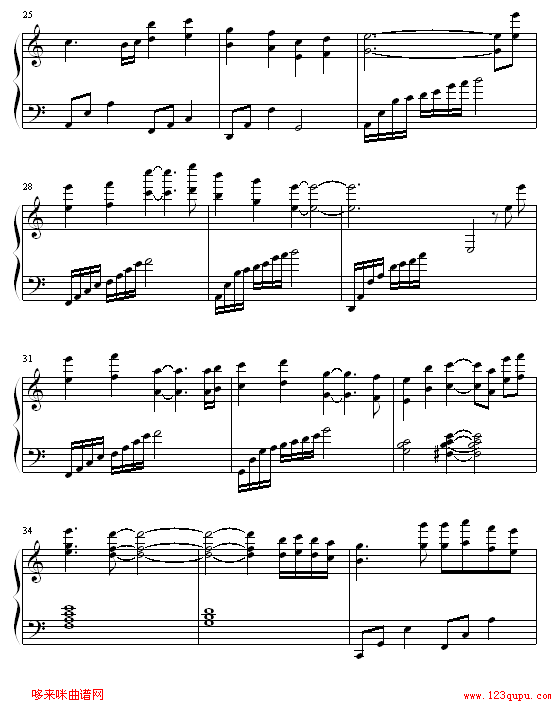 25
28
31
34
哆来咪曲谱网
www.123qupu.com